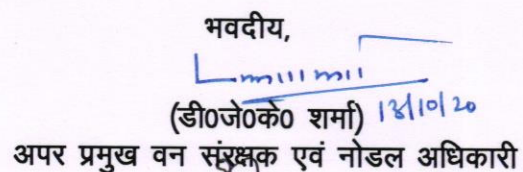 भवदीय,
(डी0जे0के0 शर्मा) 13/10/20
अपर प्रमुख वन संरक्षक एवं नोडल अधिकारी